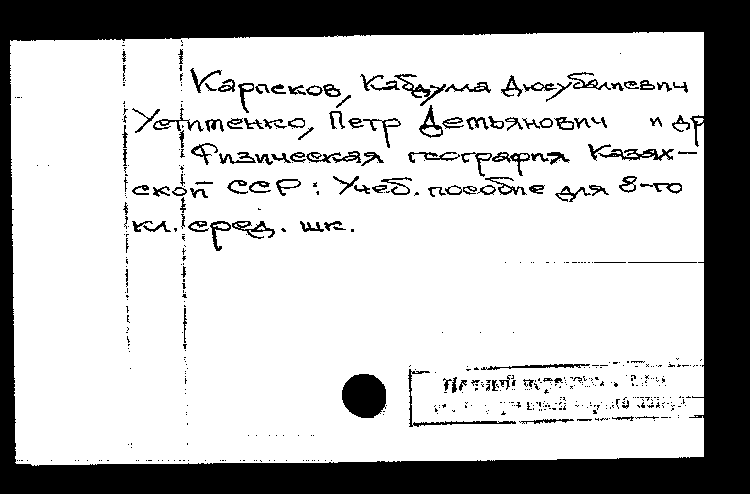 Карпеков, Кабдума Дюсубалиевич
Устименко, Петр Демьянович и др
Физическая география Казах-
ской ССР: Учеб. пособие для 8-го
кл. сред. шк.